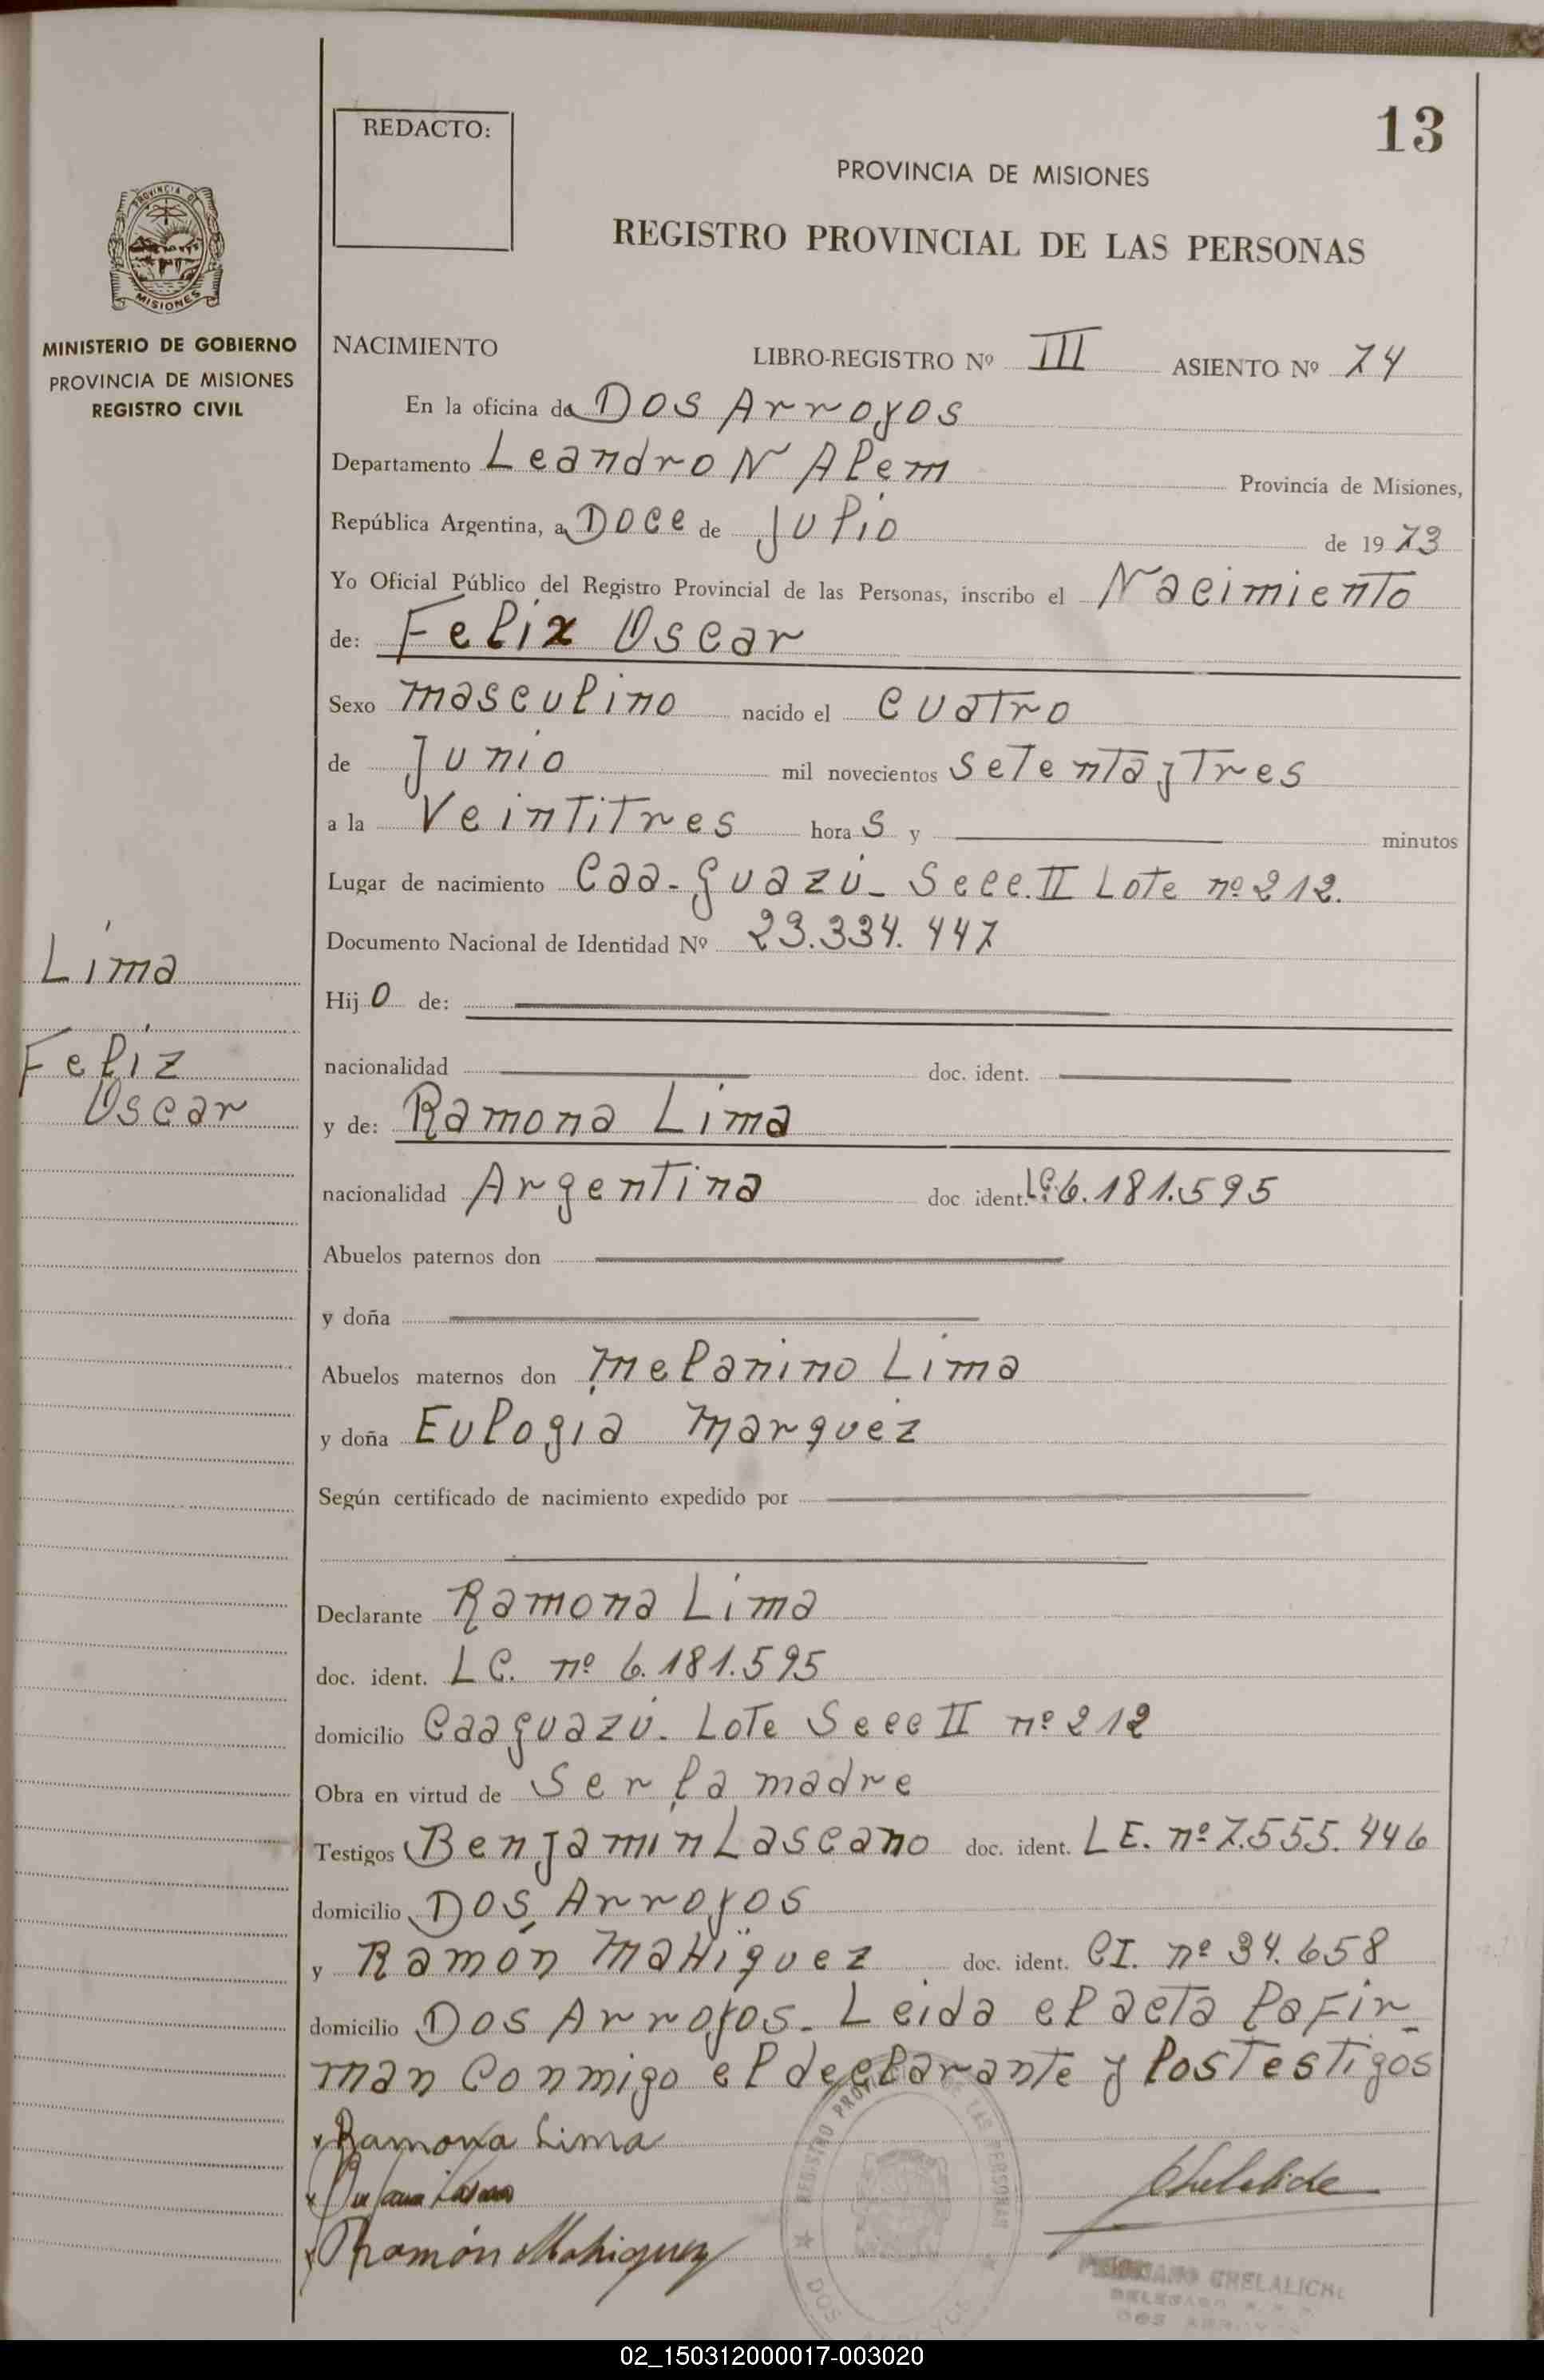 13
REDACTO:
PROVINCIA DE MISIONES
REGISTRO PROVINCIAL DE LAS PERSONAS
PROVINCIA DE
MISIONES
MINISTERIO DE GOBIERNO
PROVINCIA DE MISIONES
REGISTRO CIVIL
NACIMIENTO LIBRO-REGISTRO Nº III ASIENTO Nº 74
En la oficina de Dos Arroyos
Departamento Leandro N Alem Provincia de Misiones,
República Argentina, a Doce de Julio de 1973
Yo Oficial Público del Registro Provincial de las Personas, inscribo el Nacimiento
de: Felix Oscar
Sexo masculino nacido el cuatro
de Junio mil novecientos setenta y Tres
a la Veintitres horas y minutos
Lugar de nacimiento Caa-Guazú- Secc. II Lote nº 212.
Documento Nacional de Identidad Nº 23.334.447
Lima
Hijo de:
Feliz
nacionalidad doc. ident.
Oscar
y de: Ramona Lima
nacionalidad Argentina doc ident. LC. 6.181.595
Abuelos paternos don
y doña
Abuelos maternos don Melanino Lima
y doña Eulogia Marquez
Según certificado de nacimiento expedido por
Declarante Ramona Lima
doc. ident. LC. nº 6.181.595
domicilio Caaguazú. Lote Secc II nº 212
Obra en virtud de Ser la madre
Testigos Benjamin Lascano doc. ident. LE. nº 7.555.446
domicilio Dos Arroyos
y Ramón Mahiquez doc. ident. CI. nº 34.658
domicilio Dos Arroyos. Leida el acta la fir-
man conmigo el declarante y los Testigos
Ramona Lima
Ramón Mahiquez
REGISTRO PROV DE LAS PERSONAS
DOS
CHELALICHE
DELEGADO
DOS
02_150312000017-003020